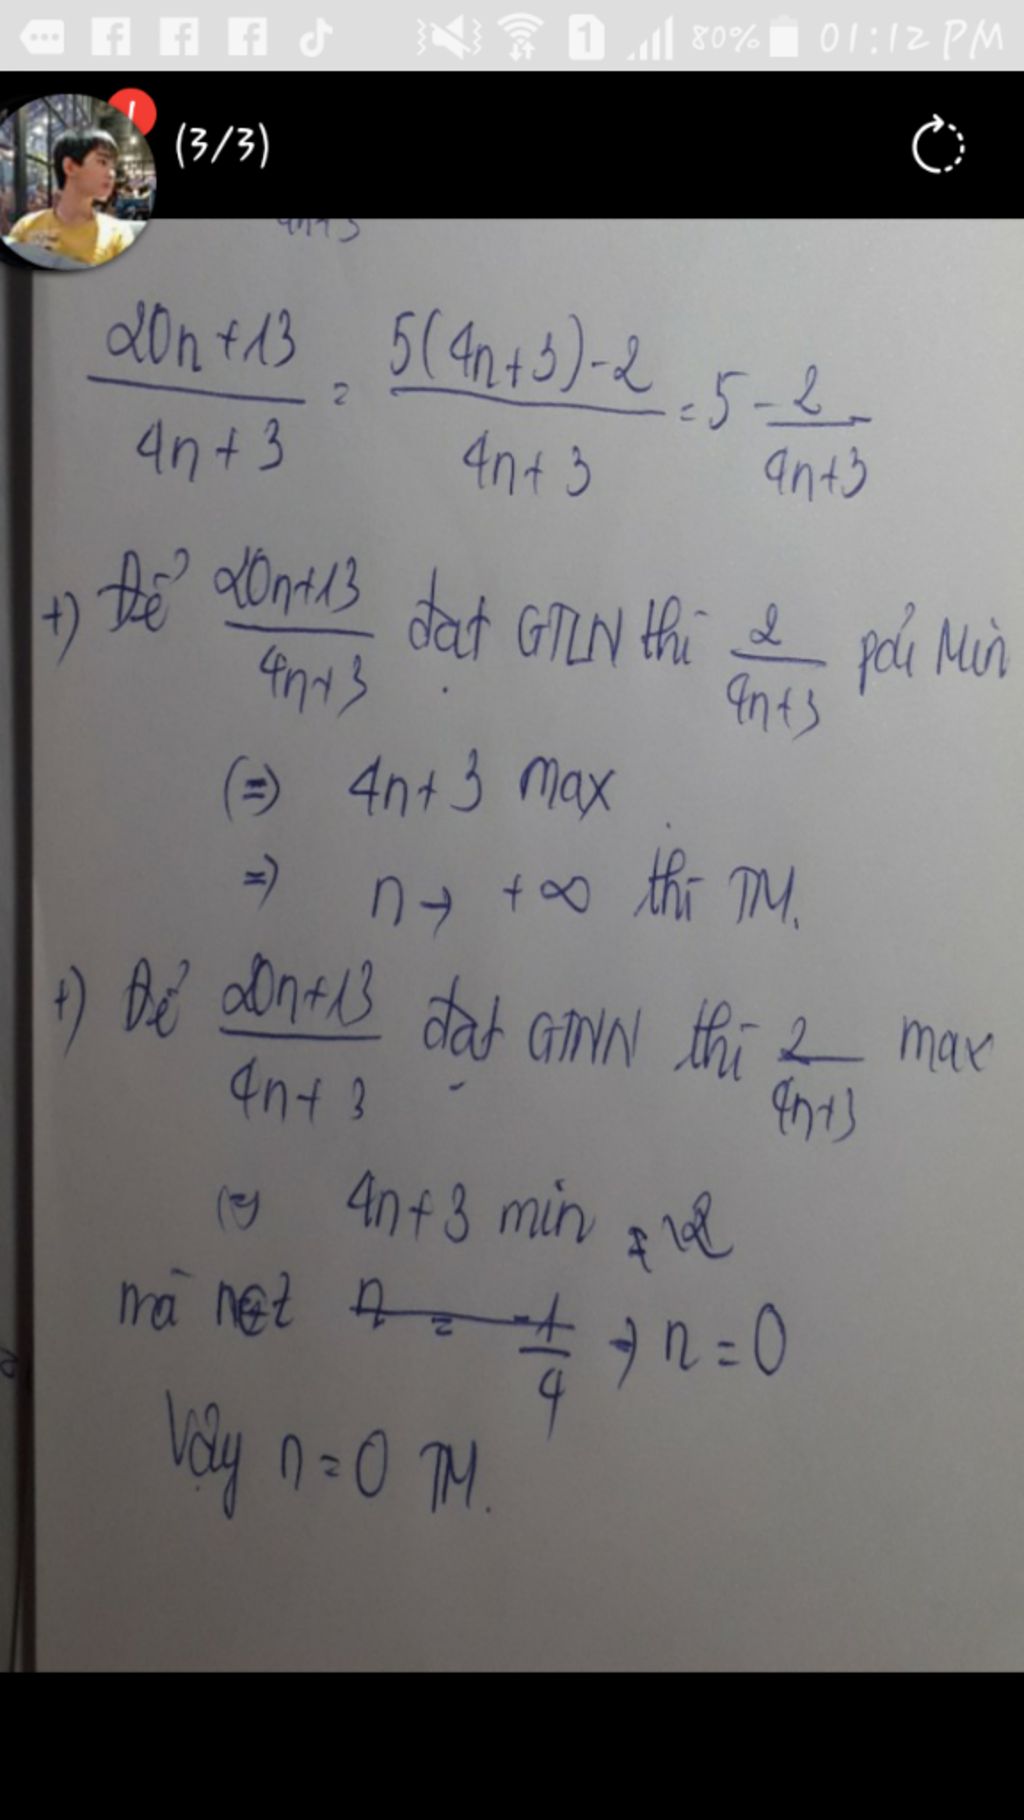 80% 01:12 PM
(3/3)
4n+3
20n+13 / 4n+3 = 5(4n+3)-2 / 4n+3 = 5 - 2 / 4n+3
+) Để 20n+13 / 4n+3 đạt GTLN thì 2 / 4n+3 pải Min
(=) 4n+3 max
=) n → +∞ thì TM.
+) Để 20n+13 / 4n+3 đạt GTNN thì 2 / 4n+3 max
(=) 4n+3 min
mà n∈Z n = -1 / 4 → n = 0
Vậy n = 0 TM.